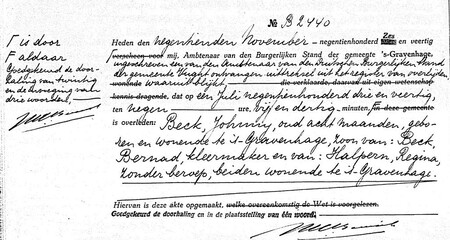 № B 2440
Heden den negentienden November – negentienhonderd Zes en veertig
verscheen voor mij, Ambtenaar van den Burgerlijken Stand der gemeente 's-Gravenhage,
ingeschreven een van den Ambtenaar van den Burgerlijken Stand
der gemeente Vught ontvangen uittreksel uit het register van overlijden
wonende waaruit blijkt die verklaarde daarvan uit eigen wetenschap
kennis dragende, dat op één Juli negentienhonderd drie en veertig,
ten negen ure, vijf en dertig minuten, in deze gemeente
is overleden: Beck, Johnny, oud acht maanden, gebo-
ren en wonende te 's-Gravenhage, zoon van: Beck,
Bernad, kleermaker en van: Halpern, Regina,
zonder beroep, beiden wonende te 's-Gravenhage.
Hiervan is deze akte opgemaakt, welke overeenkomstig de Wet is voorgelezen.
Goedgekeurd de doorhaling en in de plaatsstelling van één woord.
T is door
F aldaar
Goedgekeurd de door-
haling van twintig
en de bijvoeging van
drie woorden.